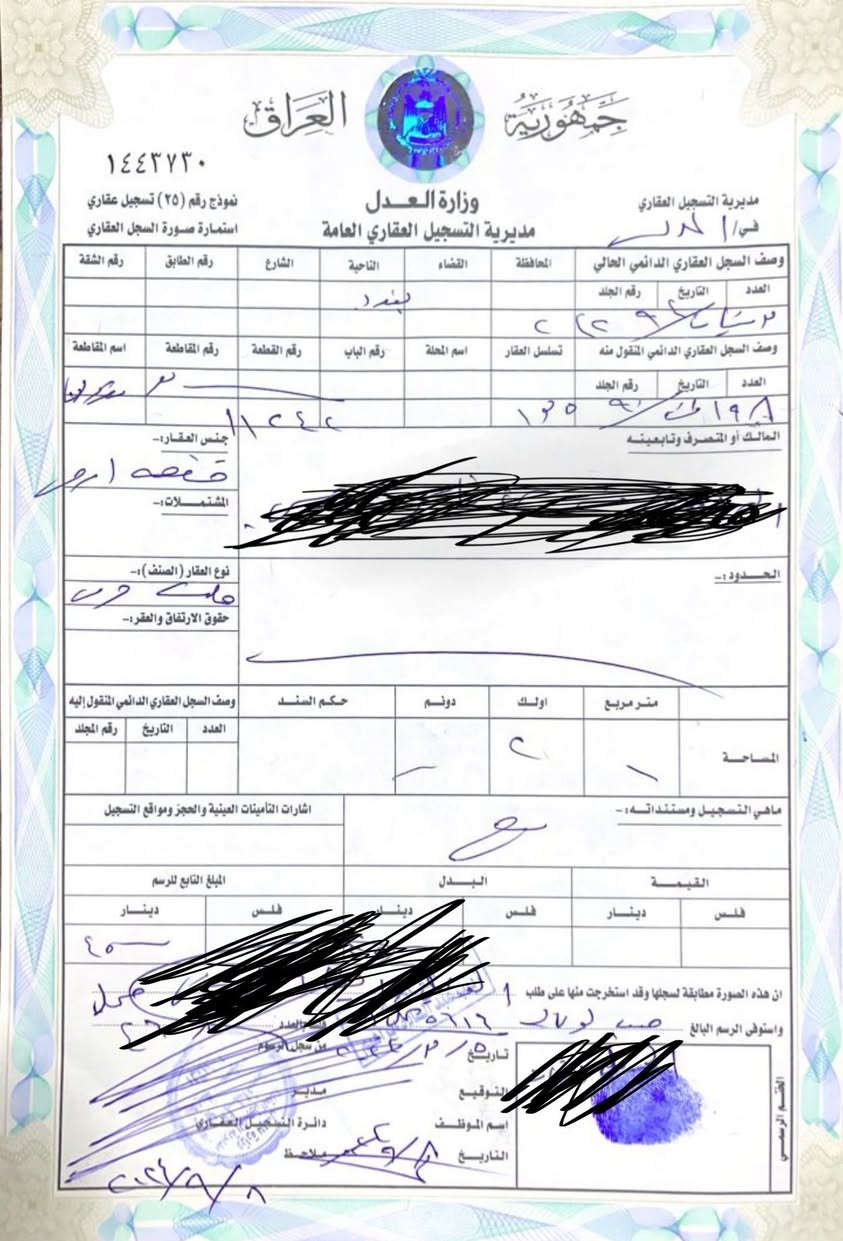 جمهورية العراق
١٤٤٣٧٣٠
مديرية التسجيل العقاري
وزارة العدل
نموذج رقم (٢٥) تسجيل عقاري
في/
مديرية التسجيل العقاري العامة
استمارة صورة السجل العقاري
وصف السجل العقاري الدائمي الحالي المحافظة القضاء الناحية الشارع رقم الطابق رقم الشقة
العدد التاريخ رقم الجلد
بغداد
وصف السجل العقاري الدائمي المنقول منه تسلسل العقار اسم المحلة رقم الباب رقم القطعة رقم المقاطعة اسم المقاطعة
العدد التاريخ رقم الجلد
المالك أو المتصرف وتابعيته
جنس العقار:-
قطعة ارض
المشتملات:-
الحدود:-
نوع العقار (الصنف):-
ملك صرف
حقوق الارتفاق والعقر:-
متر مربع اولك دونم حكم السند وصف السجل العقاري الدائمي المنقول إليه
العدد التاريخ رقم المجلد
المساحة ٢
ماهي التسجيل ومستنداته:- بيع
اشارات التأمينات العينية والحجز ومواقع التسجيل
القيمة البدل المبلغ التابع للرسم
فلس دينار فلس دينار فلس دينار
ان هذه الصورة مطابقة لسجلها وقد استخرجت منها على طلب
واستوفي الرسم البالغ
العدد
تاريخ من سجل الرسوم
التوقيع مدير
اسم الموظف دائرة التسجيل العقاري
التاريخ ملاحظ
الختم الرسمي
٢٠٢٤/٩/٨